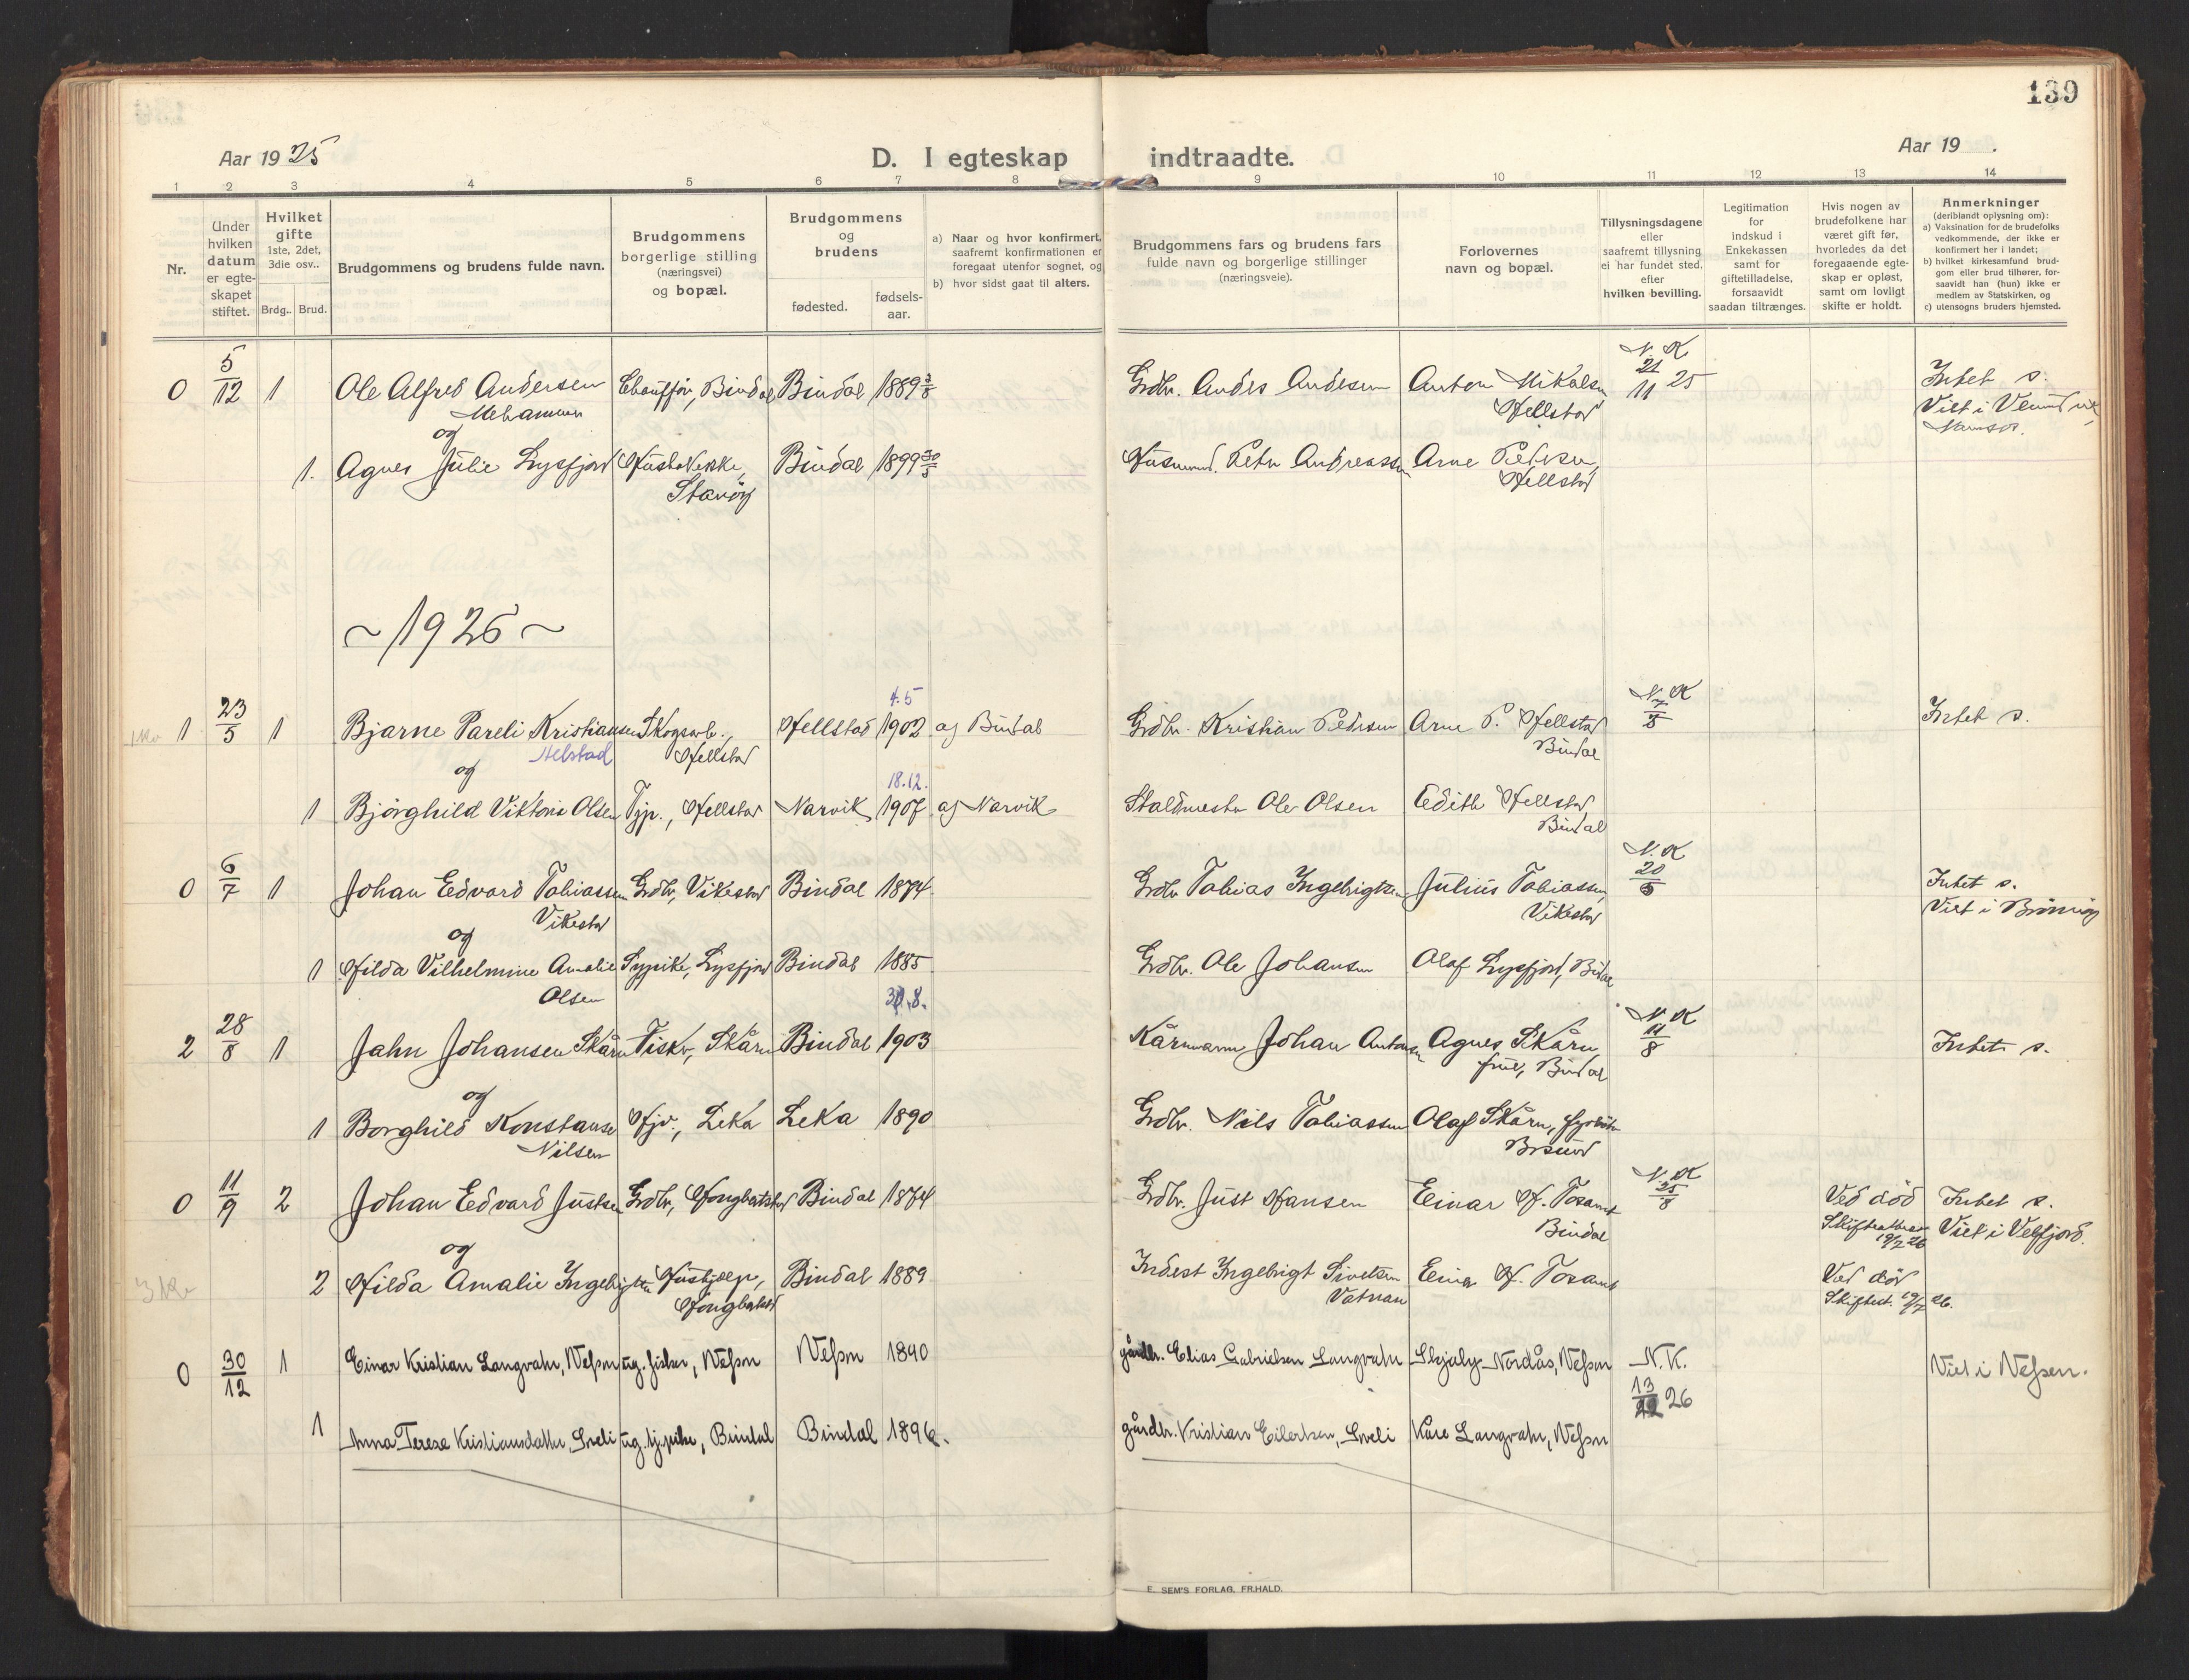 139
Aar 19 25
D. I egteskap indtraadte.
Aar 19 .
1 2 3 4 5 6 7 8 9 10 11 12 13 14
Nr.
Under
hvilken
datum
er egte-
skapet
stiftet.
Hvilket
gifte
1ste, 2det,
3die osv..
Brdg.. Brud.
Brudgommens og brudens fulde navn.
Brudgommens
borgerlige stilling
(næringsvei)
og bopæl.
Brudgommens
og
brudens
fødested.
fødsels-
aar.
a) Naar og hvor konfirmert,
saafremt konfirmationen er
foregaat utenfor sognet, og
b) hvor sidst gaat til alters.
Brudgommens fars og brudens fars
fulde navn og borgerlige stillinger
(næringsveie).
Forlovernes
navn og bopæl.
Tillysningsdagene
eller
saafremt tillysning
ei har fundet sted,
efter
hvilken bevilling.
Legitimation
for
indskud i
Enkekassen
samt for
giftetilladelse,
forsaavidt
saadan tiltrænges.
Hvis nogen av
brudefolkene har
været gift før,
hvorledes da det
foregaaende egte-
skap er opløst,
samt om lovligt
skifte er holdt.
Anmerkninger
(deriblandt oplysning om):
a) Vaksination for de brudefolks
vedkommende, der ikke er
konfirmert her i landet;
b) hvilket kirkesamfund brud-
gom eller brud tilhører, for-
saavidt han (hun) ikke er
medlem av Statskirken, og
c) utensogns bruders hjemsted.
0 5/12 1 Ole Alfred Andersen Chauffør, Bindal Bindal 1889 3/8 Grdbr. Anders Andersen Anton Mikalsen N.K. 21/11 25 Intet s.
Mehammer Hellstad Viet i
og Namsos.
1. Agnes Julie Lysfjord Bindal 1899 30/5 Husmand. Peter Andreassen Arne Pedersen,
Hellstad
~ 1926 ~
4.5
1 23/5 1 Bjarne Pareli Kristiansen Skogsarb., Hellstad 1902 af Bindal Grdbr. Kristian Pedersen Arne P. Hellstad N.K. Intet s.
Helstad Hellstad Bindal
og 18.12.
1 Bjørghild Viktoria Olsen Tjp., Hellstad Narvik 1907 af Narvik Staldmester Ole Olsen Edith Hellstad
Bindal
0 6/7 1 Johan Edvard Tobiassen Grdbr, Vikestad Bindal 1874 Grdbr Tobias Ingebrigtsen Julius Tobiassen, N.K. 20/5 Intet s.
Vikestad Vikestad Viet i Brønnøy
og
1 Hilda Vilhelmine Amalie Sypike, Lysfjord Bindal 1885 Grdbr. Ole Johansen Olaf Lysfjord, Bindal
Olsen
2 28/8 1 Jahn Johansen Skårn Fisker, Skårn Bindal 1903 Kårmann Johan Antonsen Agnes Skårn N.K. 11/8 Intet s.
frue, Bindal
og
1 Borghild Konstanse Hjv., Leka Leka 1890 Grdbr. Nils Tobiassen Olaf Skårn,
Nilsen
0 11/9 2 Johan Edvard Justsen Grdbr, Bindal 1874 Grdbr. Just Hansen Einar H. Tosamt N.K. 25/8 Ved död Intet s.
Bindal Skifteattest 19/7 26 Viet i Velfjord.
og
3 Kr 2 Hilda Amalie Ingebrigtsen Hushjælp, Bindal 1889 Inderst Ingebrigt Sivertsen Einar H. Tosamt Ved död
Vatnan Skifteat. 19/7 26.
0 30/12 1 Einar Kristian Langvatn, Vefsn ug. fisker, Vefsn Vefsn 1890 gårdbr. Elias Gabrielsen Langvatn Nordås, Vefsn N.K. Viet i Vefsen.
13/12 26
1 Anna Terese Kristiansdatter, ug. tj.pike, Bindal Bindal 1896. gårdbr. Kristian Eilertsen, Kåre Langvatn, Vefsn
E. SEM'S FORLAG, FR.HALD.